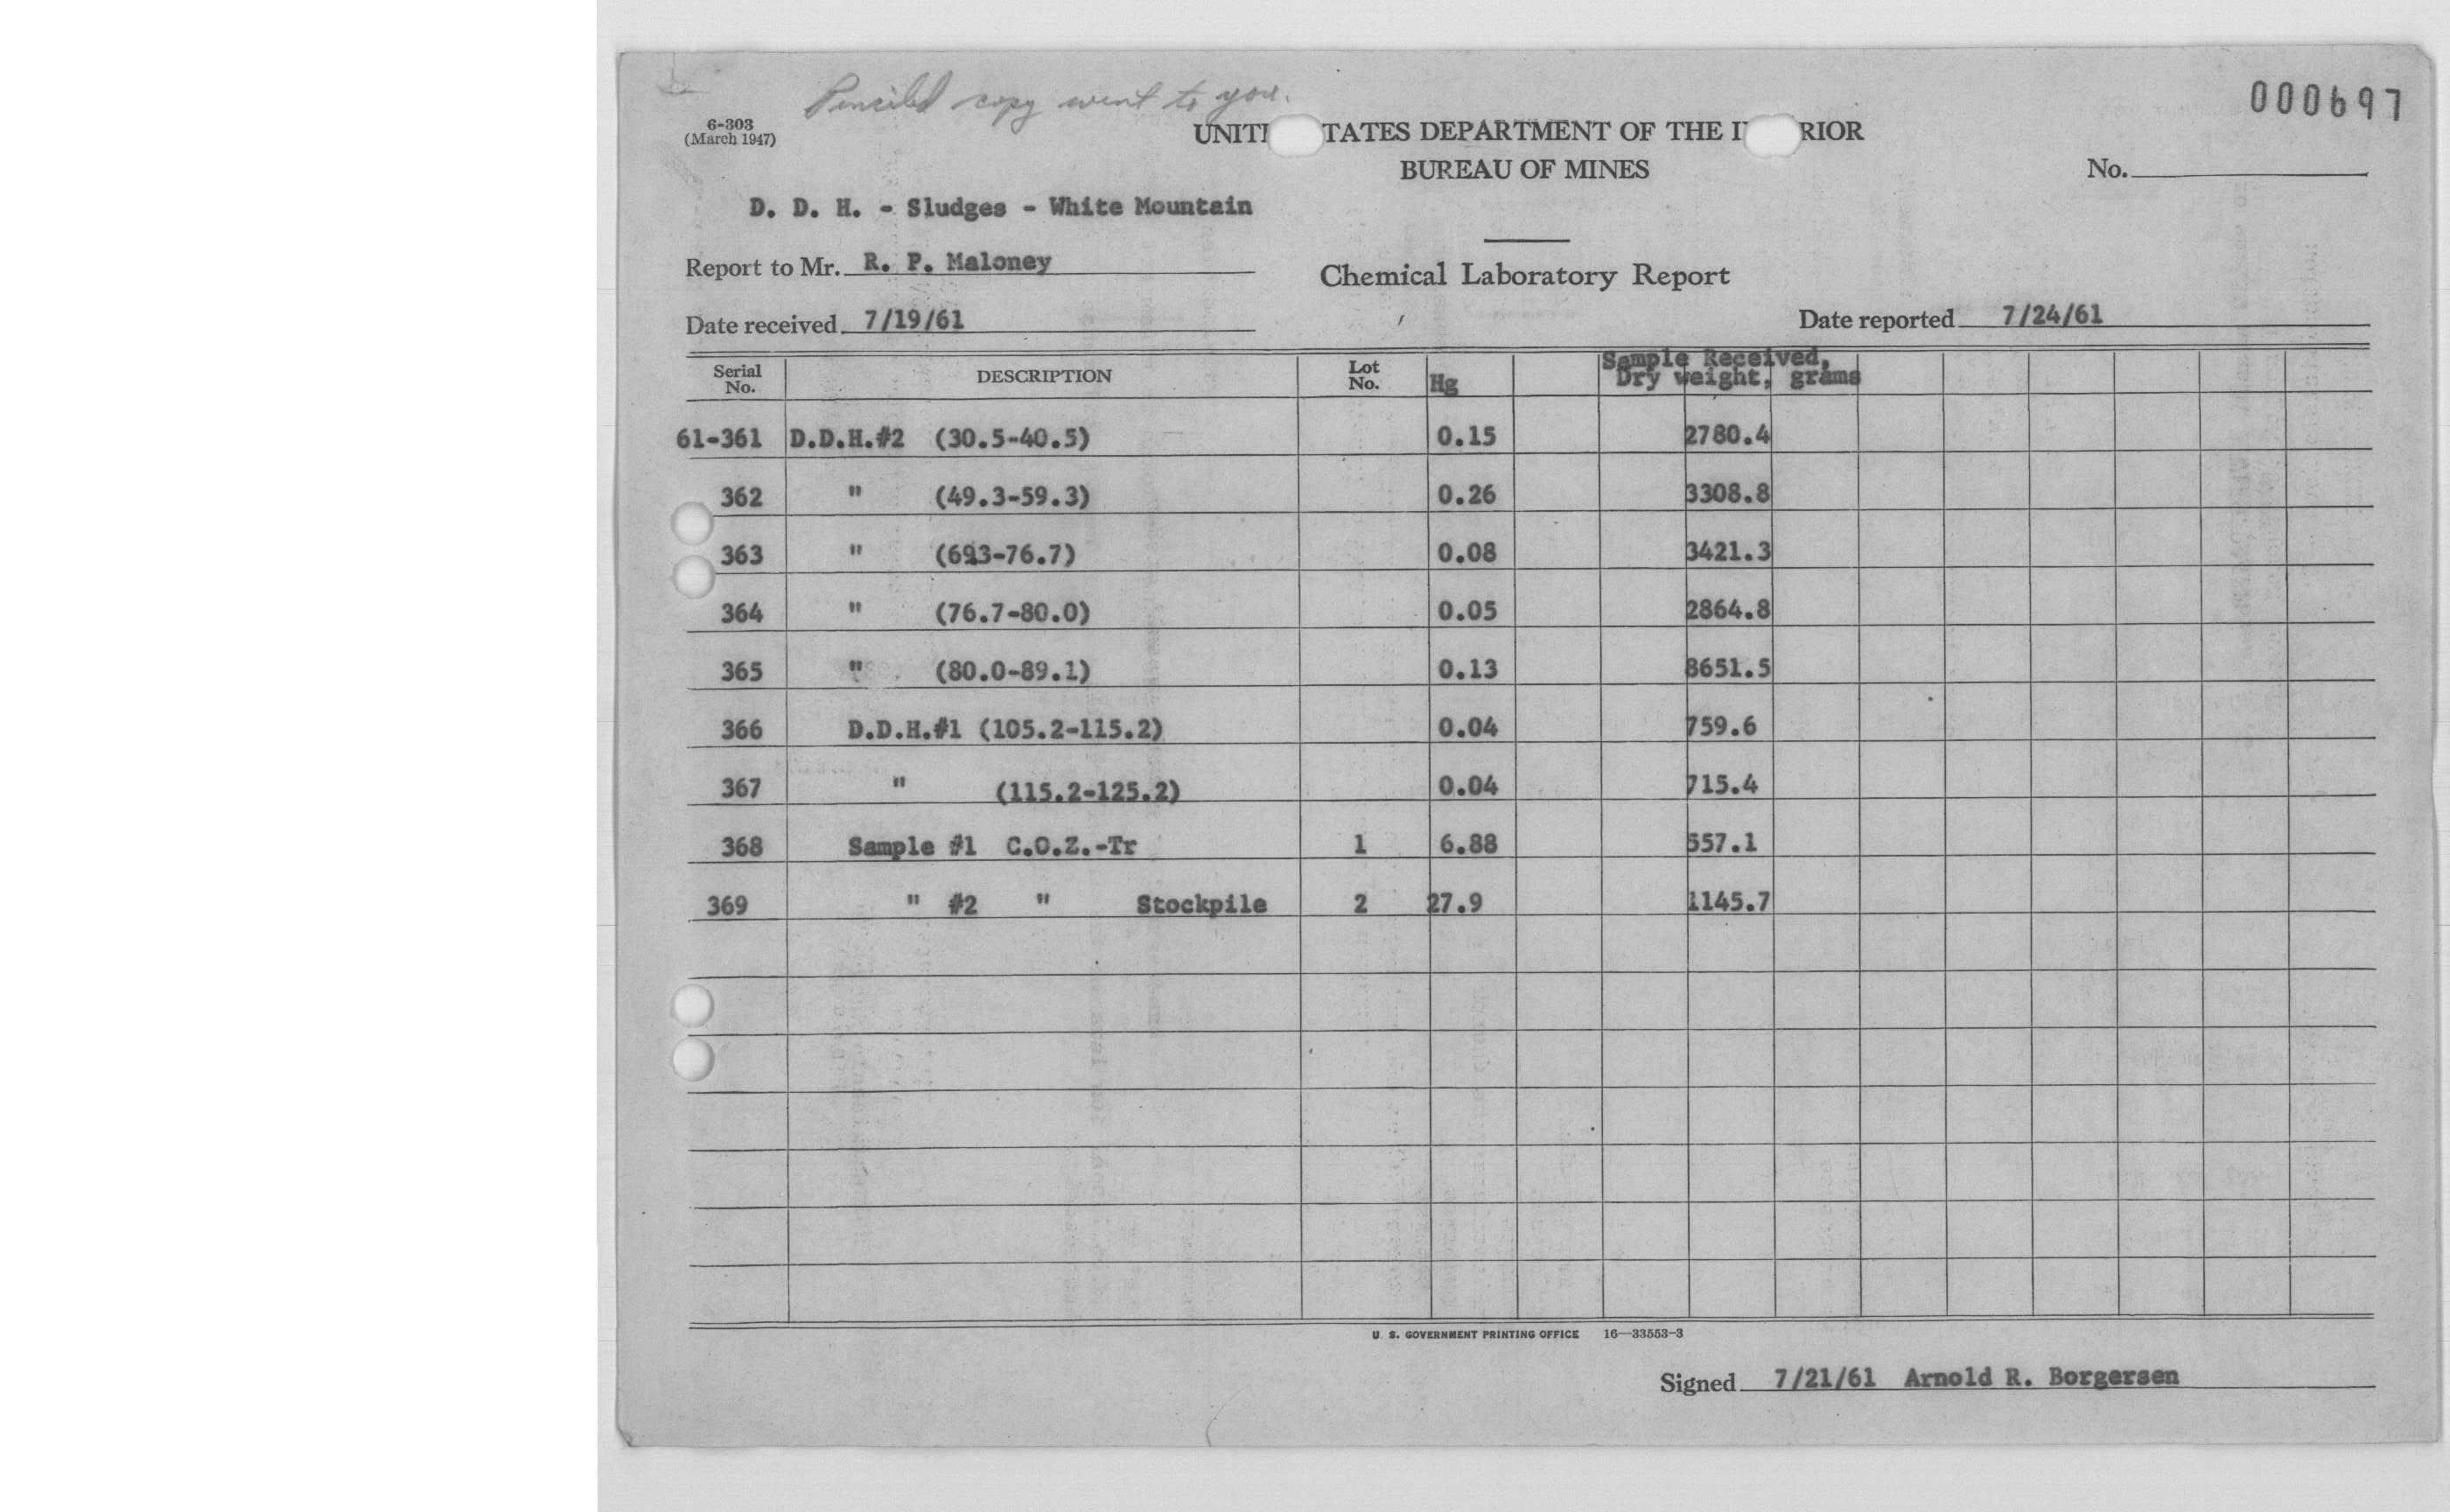 Penciled copy went to you.
000697
6-303
(March 1947)
UNITE STATES DEPARTMENT OF THE I RIOR
BUREAU OF MINES
No.
D. D. H. - Sludges - White Mountain
Report to Mr. R. P. Maloney
Chemical Laboratory Report
Date received 7/19/61
Date reported 7/24/61
Serial No. DESCRIPTION Lot No. Hg Sample Received, Dry weight, grams
61-361 D.D.H.#2 (30.5-40.5) 0.15 2780.4
362 " (49.3-59.3) 0.26 3308.8
363 " (693-76.7) 0.08 3421.3
364 " (76.7-80.0) 0.05 2864.8
365 " (80.0-89.1) 0.13 8651.5
366 D.D.H.#1 (105.2-115.2) 0.04 759.6
367 " (115.2-125.2) 0.04 715.4
368 Sample #1 C.O.Z.-Tr 1 6.88 557.1
369 " #2 " Stockpile 2 27.9 1145.7
U. S. GOVERNMENT PRINTING OFFICE 16—33553-3
Signed 7/21/61 Arnold R. Borgersen